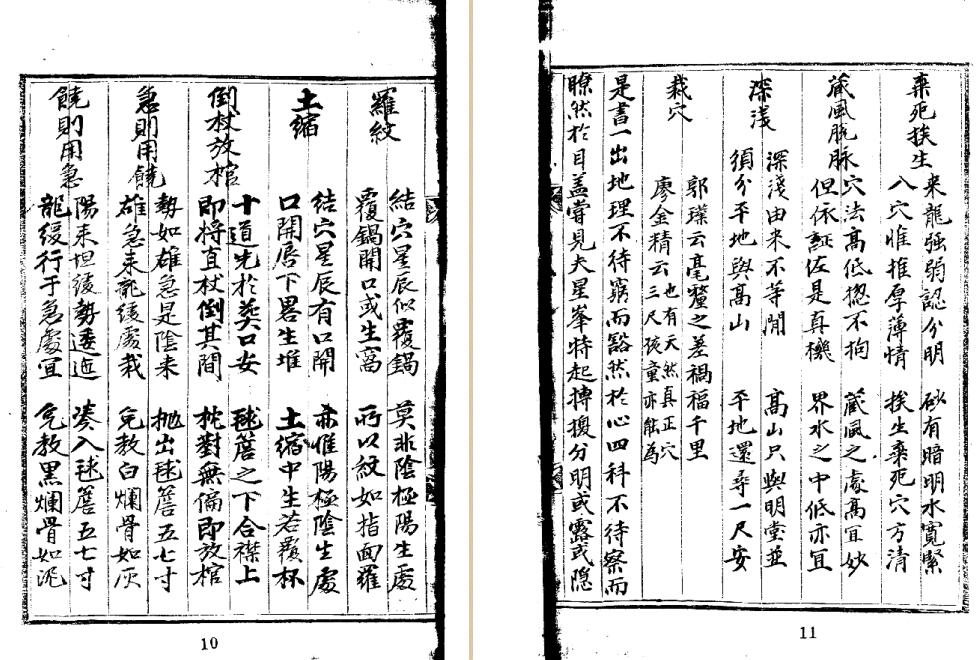 羅紋
結穴星辰似覆鍋 莫非陰極陽生處
覆鍋開口或生窩 所以紋如指面羅
土縮
結穴星辰有口開 亦惟陽極陰生處
口開唇下畧生堆 土縮中生若覆杯
倒杖放棺
十道先於葬口安 毬簷之下合襟上
即將直杖倒其間 枕對無偏即放棺
急則用饒
勢如雄急是陰来 抛出毬簷五七寸
雄急来龍緩處栽 免教白爛骨如灰
饒則用急
陽来坦緩勢逶迤 凑入毬簷五七寸
龍緩行于急處宜 免教黑爛骨如泥
10
棄死挨生
来龍強弱認分明 砂有暗明水寬緊
八穴惟推厚薄情 挨生棄死穴方清
藏風脫脉
穴法高低揔不拘 藏風之處高宜妙
但依証佐是真機 界水之中低亦宜
深淺
深淺由来不等閒 高山只與明堂並
須分平地與高山 平地還尋一尺安
栽穴
郭璞云毫釐之差禍福千里
廖金精云也有天然真正穴三尺孩童亦能為
是書一出地理不待窮而豁然於心四科不待察而
瞭然於目盖嘗見夫星峯特起摶換分明或露或隱
11